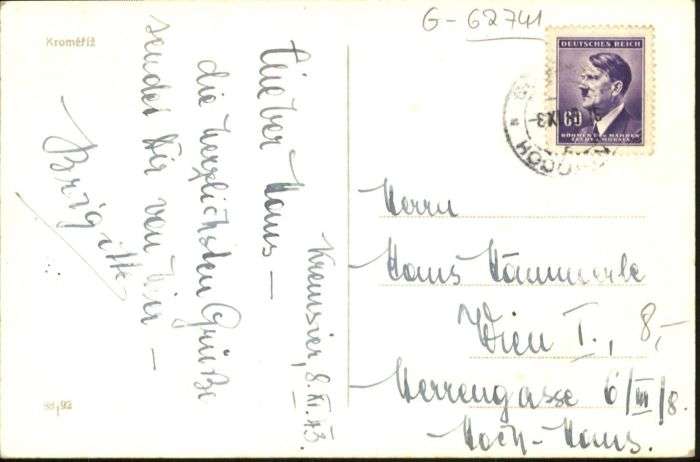 Kroměříž
G-62741
DEUTSCHES REICH
60
BÖHMEN UND MÄHREN
ČECHY A MORAVA
Kremsier, 8. XI. 43.
Lieber Hans –
die herzlichsten Grüße
sendet Dir von hier –
Brigitte
Herrn
Hans Hämmerle
Wien I., 8,-
Herrengasse 6/III/8.
Hoch-Haus.